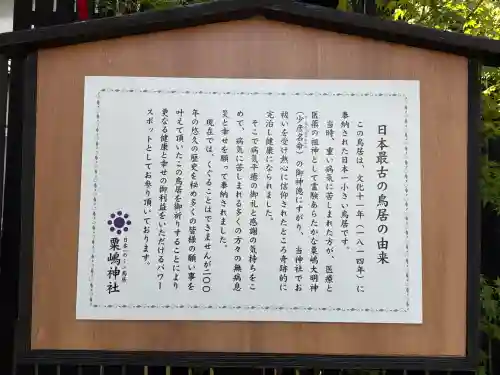 日本最古の鳥居の由来
この鳥居は、文化十一年（一八一四年）に
奉納された日本一小さい鳥居です。
当時、重い病気に苦しまれた方が、医療と
医薬の祖神として霊験あらたかな粟嶋大明神
（少彦名命）の御神徳にすがり、当神社でお
祓いを受け熱心に信仰されたところ奇跡的に
完治し健康になられました。
そこで病気平癒の御礼と感謝の気持ちをこ
めて、病気に苦しまれる多くの方々の無病息
災と幸せを願って奉納されました。
現在では、くぐることはできませんが二〇〇
年の悠久の歴史を秘め多くの皆様の願い事を
叶えて頂いたこの鳥居を御祈りすることにより
更なる健康と幸せの御利益をいただけるパワー
スポットとしてお参り頂いております。
日本一の小鳥居
粟嶋神社